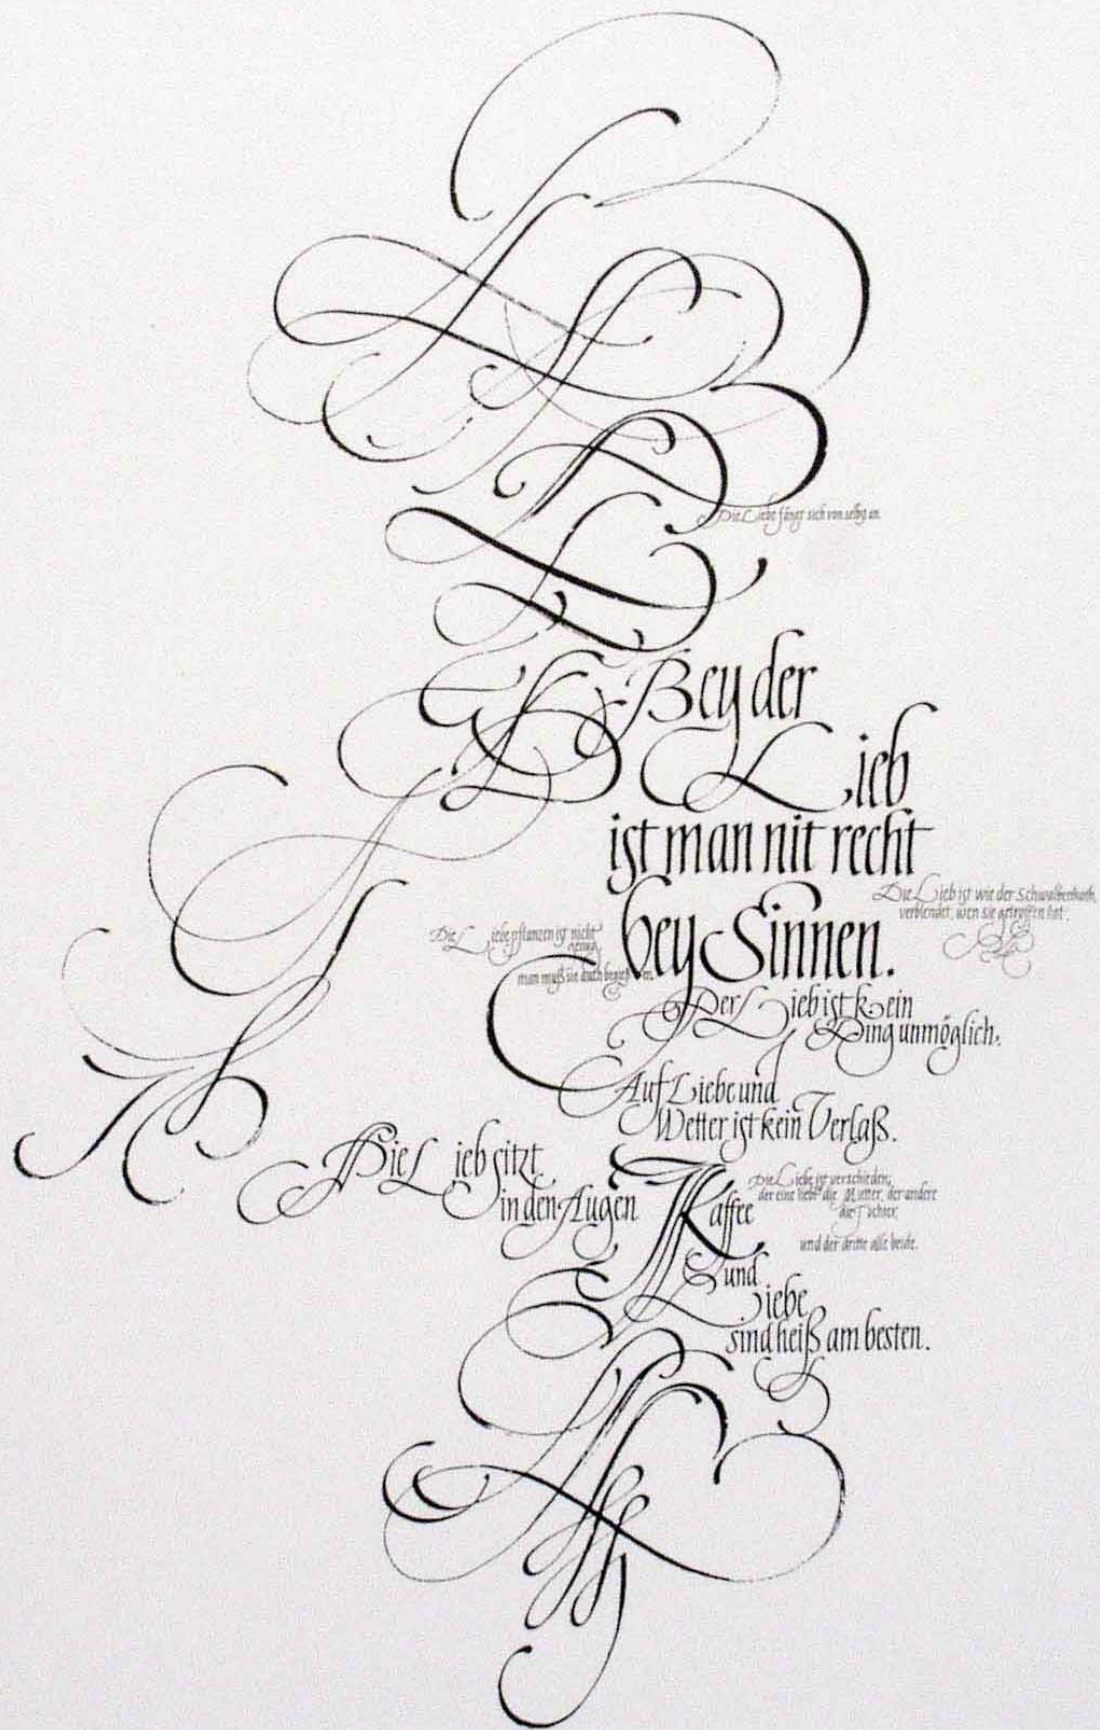 Die Liebe fängt sich von selbst an.
Bey der
Lieb
ist man nit recht
bey Sinnen.
Die Lieb ist wie der Schwalbenkoth,
verblendet, wen sie getroffen hat.
Die Liebe pflanzen ist nicht
genug,
man muß sie auch begießen.
Der Lieb ist kein
Ding unmöglich.
Auf Liebe und
Wetter ist kein Verlaß.
Die Lieb sitzt
in den Augen
Die Liebe ist verschieden;
der eine liebt die Mutter, der andere
die Tochter,
und der dritte alle beide.
Kaffee
und
Liebe
sind heiß am besten.